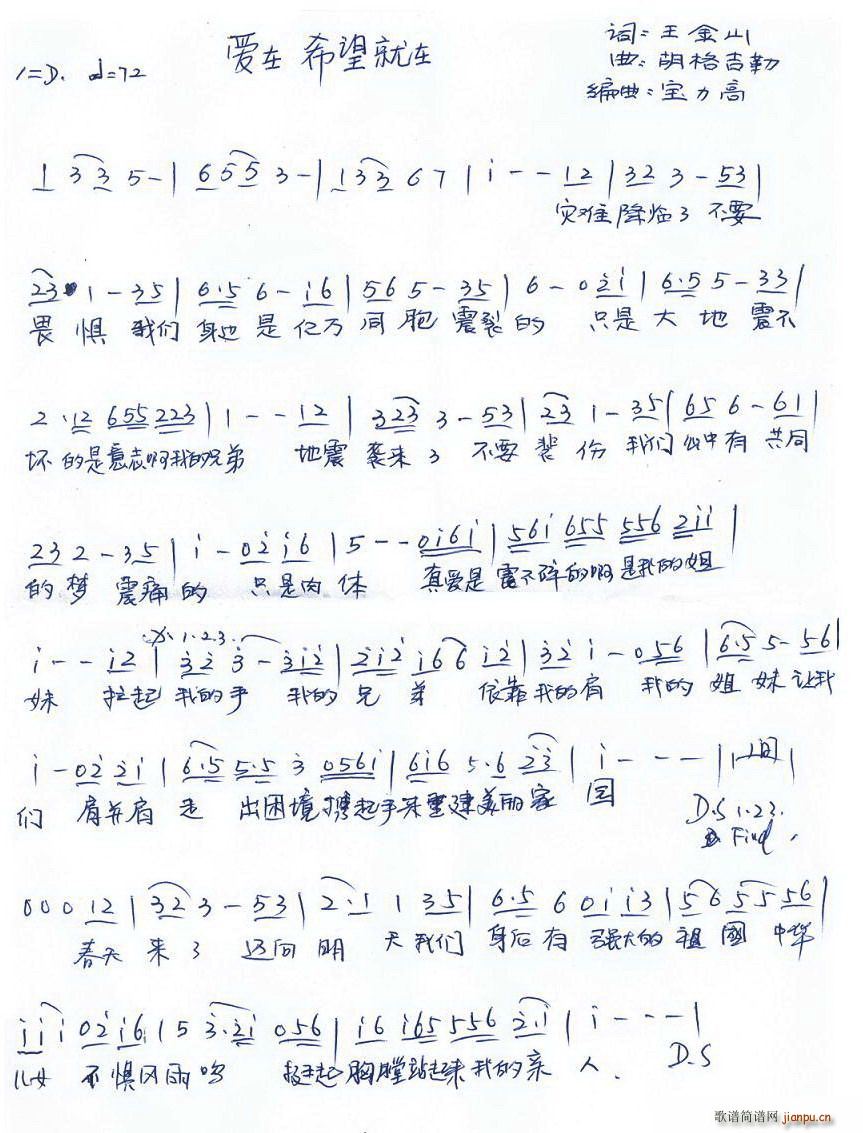 爱在 希望就在
词：王金山
1=D. d=72
曲：胡格吉勒
编曲：宝力高
1 3 3 5 - | 6 5 5 3 - | 1 3 3 6 7 | i - - 1 2 | 3 2 3 - 5 3 |
灾难降临了 不要
2 3 1 - 3 5 | 6·5 6 - i 6 | 5 6 5 - 3 5 | 6 - 0 2 i | 6·5 5 - 3 3 |
畏惧 我们身边是亿万同胞 震裂的 只是大地 震不
2·1 2 6 5 5 2 2 3 | 1 - - 1 2 | 3 2 3 3 - 5 3 | 2 3 1 - 3 5 | 6 5 6 - 6 1 |
坏的是意志啊我的兄弟 地震袭来了 不要 我们心中有共同
2 3 2 - 3 5 | i - 0 2 i 6 | 5 - - 0 i 6 i | 5 6 i 6 5 5 5 5 6 2 i i |
的梦 震痛的 只是肉体 真爱是震不碎的啊是我的姐
1.2.3.
i - - i 2 | 3 2 3 - 3 i 2 | 2 i 2 i 6 6 i 2 | 3 2 i - 0 5 6 | 6·5 5 - 5 6 |
妹 拉起我的手 我的兄弟 依靠我的肩 我的姐妹让我
i - 0 2 2 i | 6·5 5·5 3 0 5 6 i | 6 i 6 5·6 2 3 | i - - - | 间 |
们 肩并肩走 出困境携起手来重建美丽家 国
D.S 1.2.3.
Find
0 0 0 1 2 | 3 2 3 - 5 3 | 2·1 1 3 5 | 6·5 6 0 i i 3 | 5 6 5 5 5 6 |
春天来了 迈向明天我们身后有强大的祖國 中华
i i i 0 2 i 6 | 5 3·2 i 0 5 6 | i 6 i 6 5 5 5 6 2·i | i - - - |
儿女 不惧风雨 挺起胸膛站起来我的亲人.
D.S
歌谱简谱网 jianpu.cn